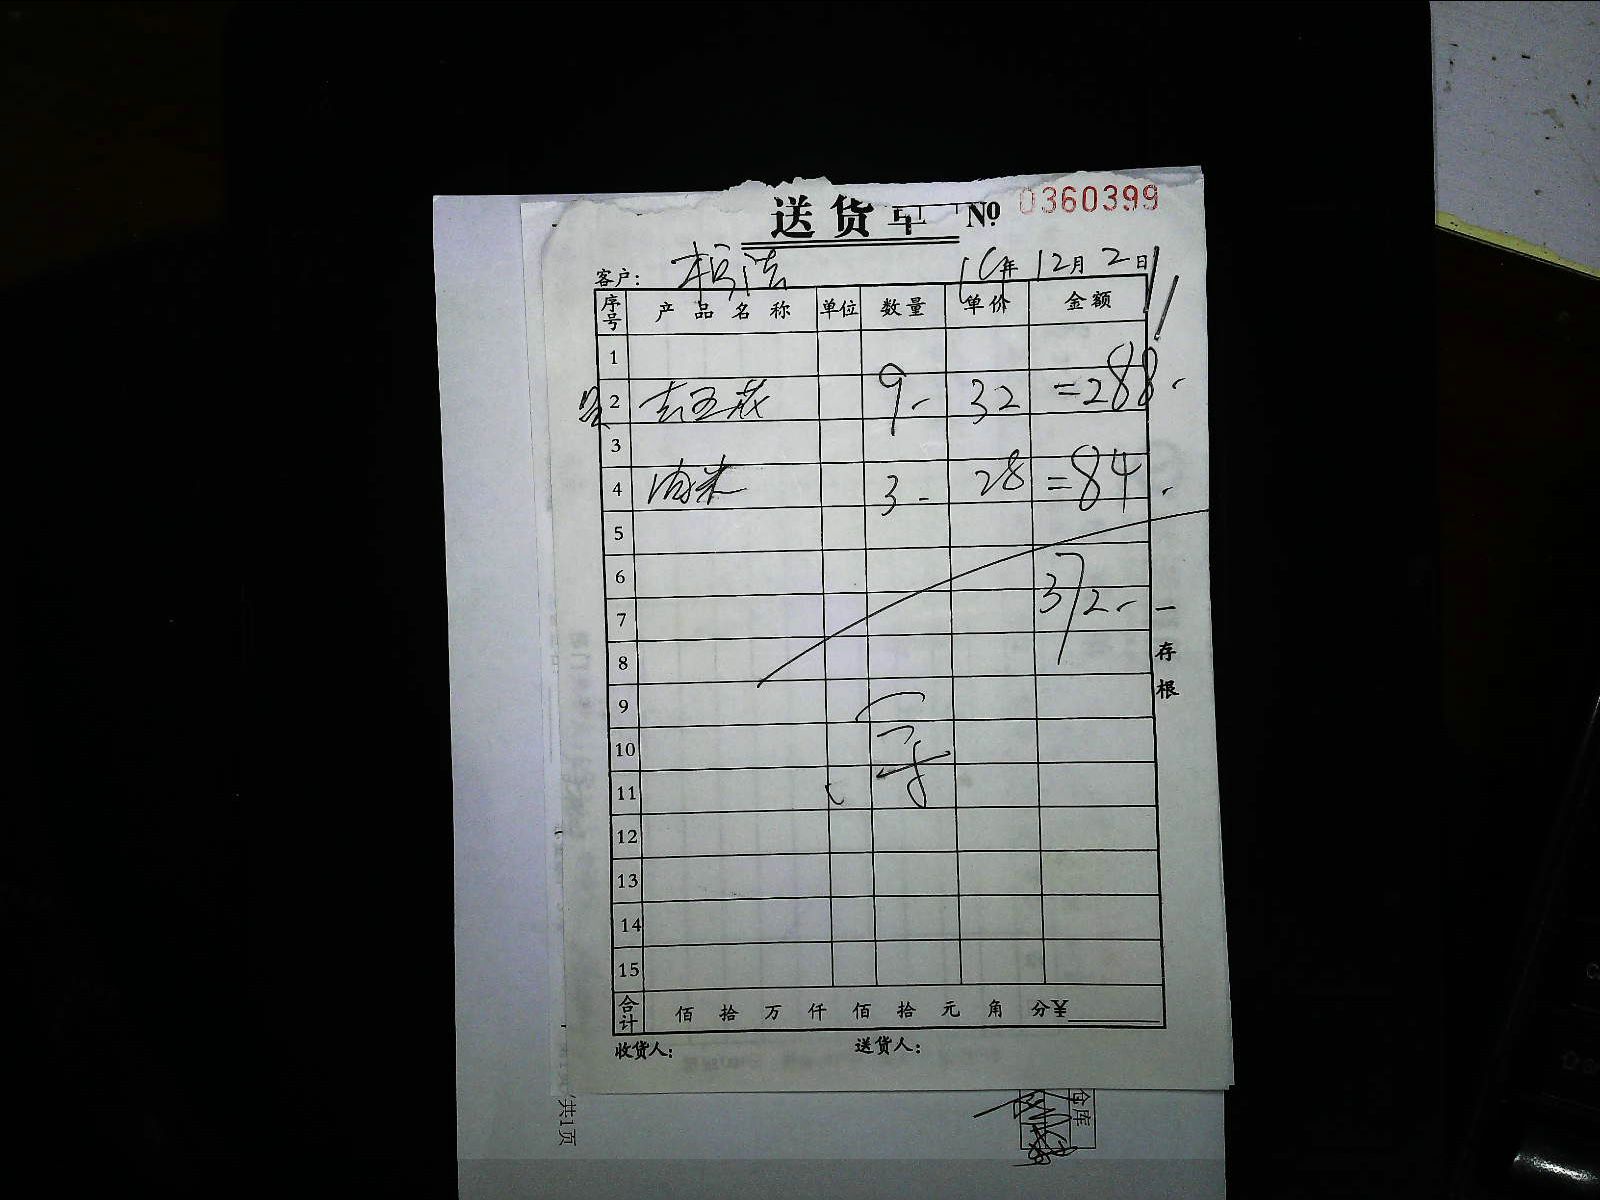 送货单 № 0360399
客户： 16年 12月 2日
序号 产品名称 单位 数量 单价 金额
1
2 9- 32 =288.-
3
4 肉末 3- 28 =84.-
5
6
7 372.- 一存根
8
9
10
11
12
13
14
15
合计 佰 拾 万 仟 佰 拾 元 角 分¥
收货人： 送货人：
仓库
共1页